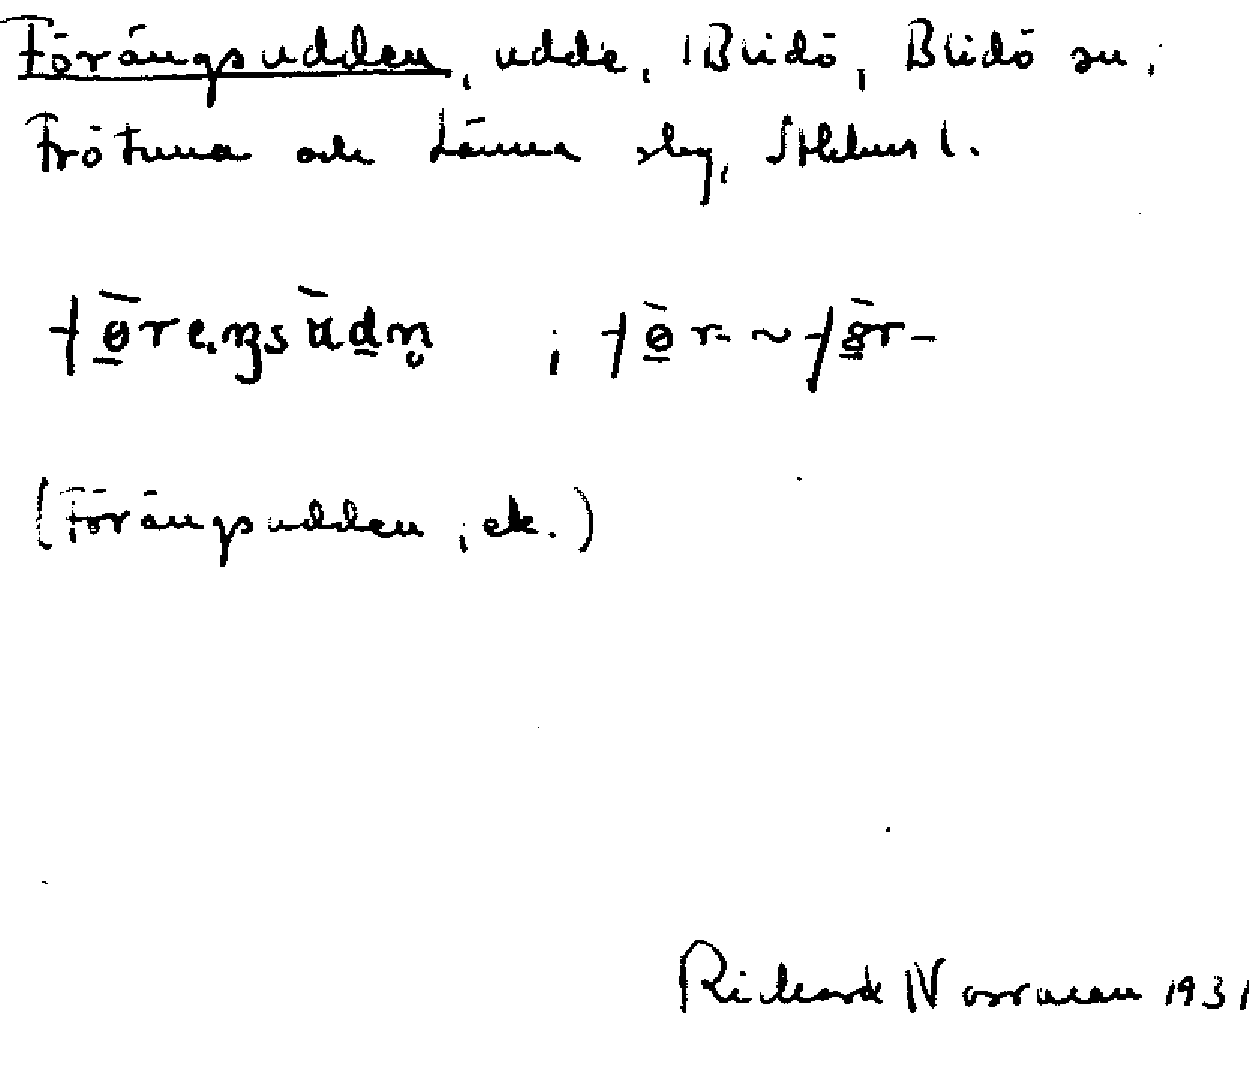 Förängsudden, udde, Blidö, Blidö sn,
Frötuna och Länna slg, Sthlms l.
(Förängsudden, ek.)
Richard Norrman 1931